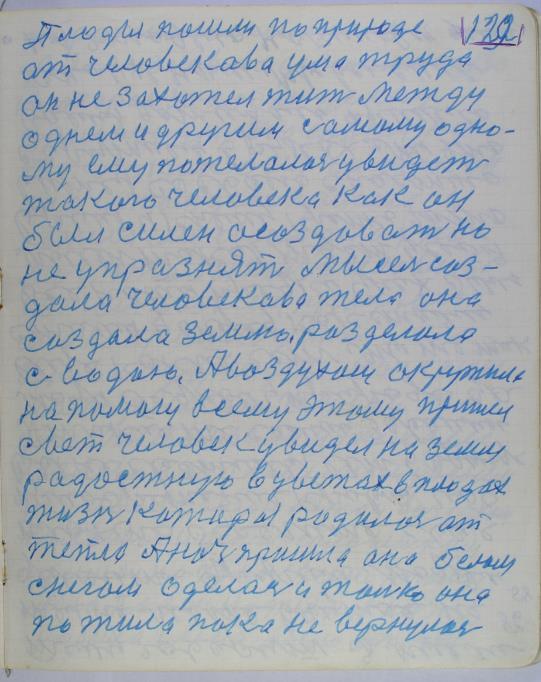 129
Плодья пошли по природе
от человекова ума труда
он не захотел жит между
однем и другим самому одно-
му ему пожелалося увидет
такого человека как он
был силен осоздоват но
не упразнят мысел соз-
дала человекова тела она
создала землю, разделола
с водою. А воздухом окружила
на помогу всему этому пришел
свет человек увидел на земли
радостную в цветах в плодах
жизн катара родилося от
тепло А ноч пришла она белым
снегом оделася и толко она
по жила пока не вернулося